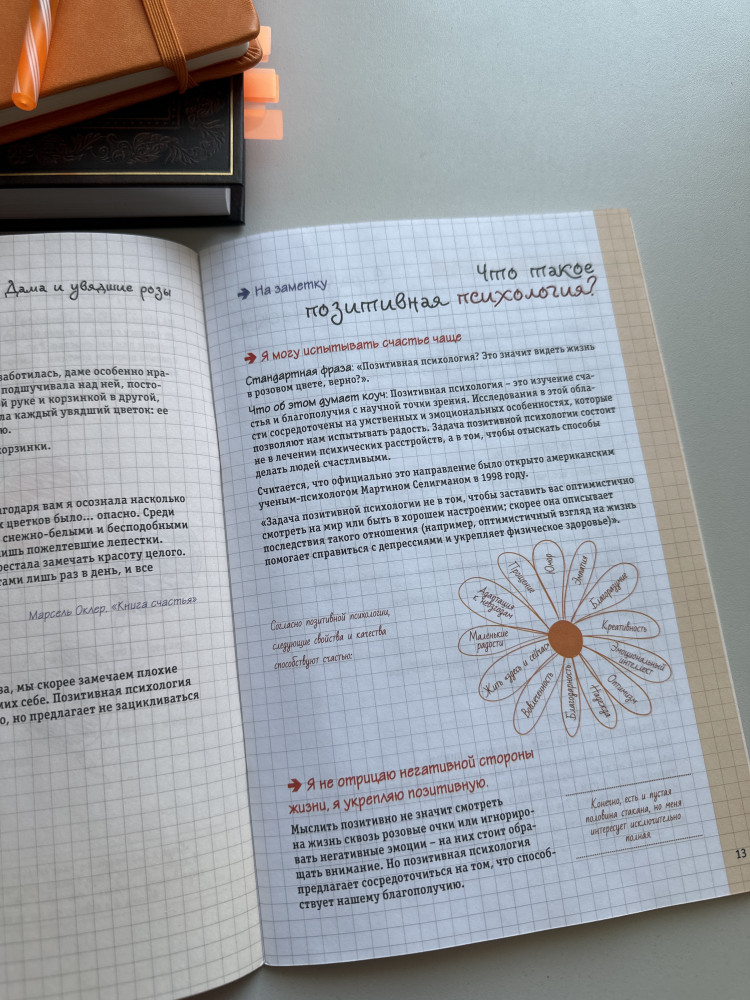 Дама и увядшие розы
заботилась, даме особенно нра-
подшучивала над ней, посто-
й руке и корзинкой в другой,
ла каждый увядший цветок: ее
ю.
корзинки.
агодаря вам я осознала насколько
х цветков было... опасно. Среди
снежно-белыми и бесподобными
ишь пожелтевшие лепестки.
рестала замечать красоту целого.
тами лишь раз в день, и все
Марсель Оклер, «Книга счастья»
ва, мы скорее замечаем плохие
мих себе. Позитивная психология
о, но предлагает не зацикливаться
На заметку
Что такое
позитивная психология?
Я могу испытывать счастье чаще
Стандартная фраза: «Позитивная психология? Это значит видеть жизнь
в розовом цвете, верно?».
Что об этом думает коуч: Позитивная психология – это изучение сча-
стья и благополучия с научной точки зрения. Исследования в этой обла-
сти сосредоточены на умственных и эмоциональных особенностях, которые
позволяют нам испытывать радость. Задача позитивной психологии состоит
не в лечении психических расстройств, а в том, чтобы отыскать способы
делать людей счастливыми.
Считается, что официально это направление было открыто американским
ученым-психологом Мартином Селигманом в 1998 году.
«Задача позитивной психологии не в том, чтобы заставить вас оптимистично
смотреть на мир или быть в хорошем настроении; скорее она описывает
последствия такого отношения (например, оптимистичный взгляд на жизнь
помогает справиться с депрессиями и укрепляет физическое здоровье)».
Согласно позитивной психологии,
следующие свойства и качества
способствуют счастью:
Юмор
Эмпатия
Благоразумие
Креативность
Эмоциональный
интеллект
Оптимизм
Надежда
Благодарность
Вовлеченность
Жить «здесь и сейчас»
Маленькие
радости
Адаптация
к невзгодам
Прощение
Я не отрицаю негативной стороны
жизни, я укрепляю позитивную.
Мыслить позитивно не значит смотреть
на жизнь сквозь розовые очки или игнориро-
вать негативные эмоции – на них стоит обра-
щать внимание. Но позитивная психология
предлагает сосредоточиться на том, что способ-
ствует нашему благополучию.
Конечно, есть и пустая
половина стакана, но меня
интересует исключительно
полная
13